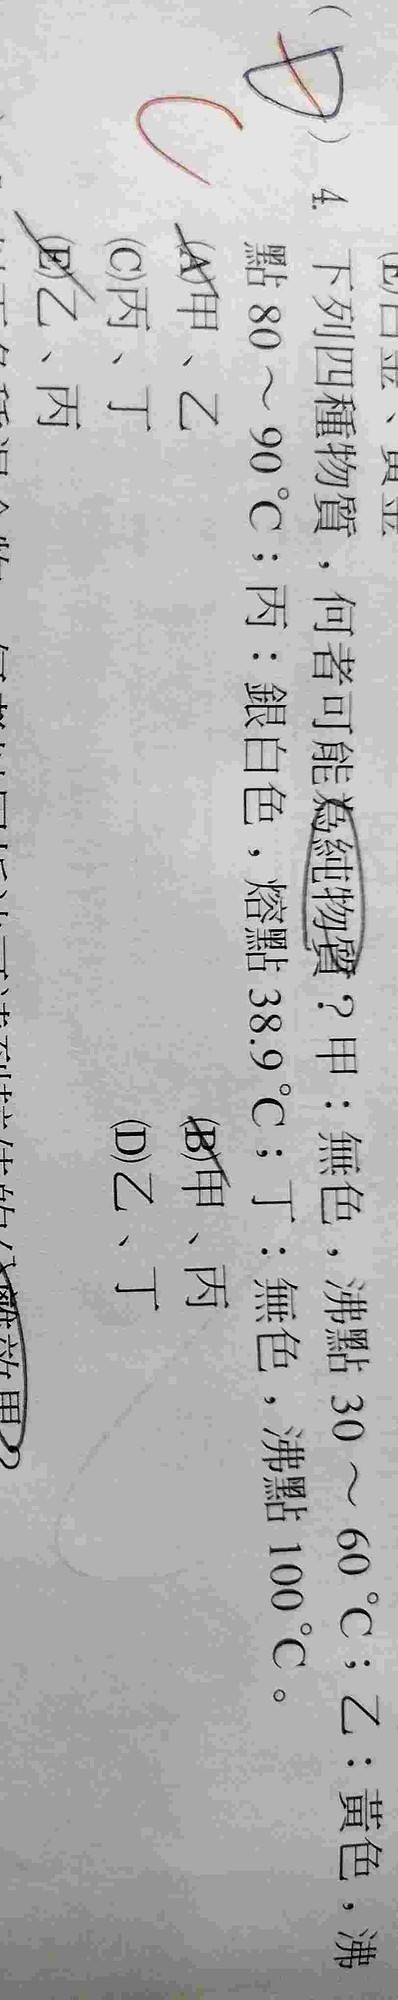 (E)白金、黃金
( D ) 4. 下列四種物質，何者可能為純物質？甲：無色，沸點 30～60℃；乙：黃色，沸
點 80～90℃；丙：銀白色，熔點 38.9℃；丁：無色，沸點 100℃。
C
(A)甲、乙 (B)甲、丙
(C)丙、丁 (D)乙、丁
(E)乙、丙